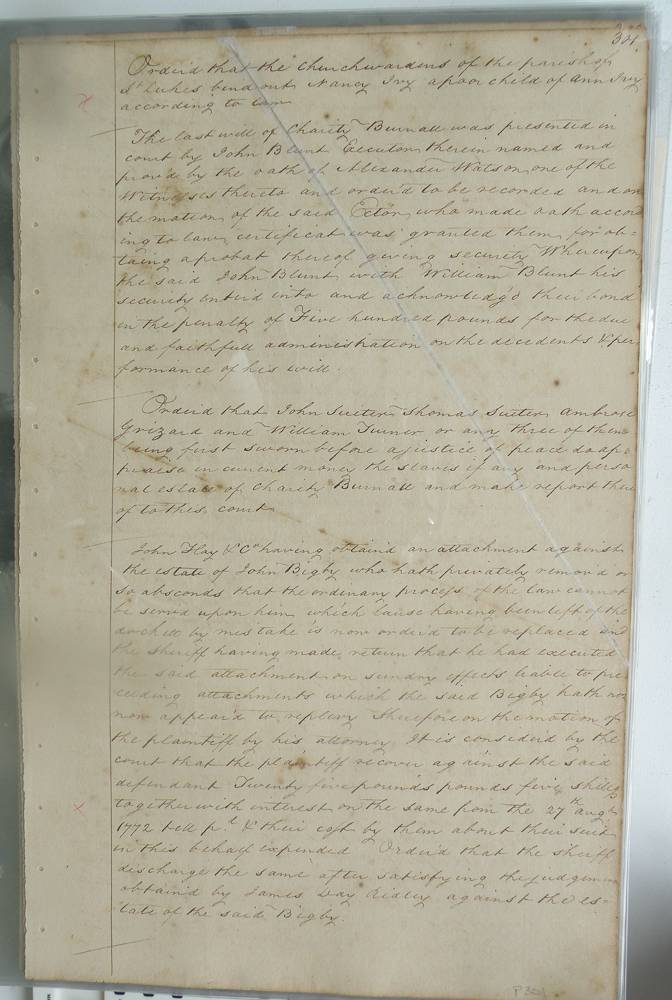 Orderd that the Churchwardens of the parish of
St Lukes bind out Nancy Ivy a poor child of Ann Ivy
according to law
The last will of Charity Burnall was presented in
court by John Blunt Executor therein named and
prov'd by the oath of Alexander Watson one of the
Witnesses thereto and order'd to be recorded and on
the motion of the said Extor who made oath accord
ing to law certificat was granted them for ob=
taing a probat thereof giving security Whereupon
the said John Blunt with William Blunt his
security enterd into and acknowledg'd their bond
in the penalty of Five hundred pounds for the due
and faithfull administration on the decedents & per
formance of his will.
Orderd that John Suiter Thomas Suiter Ambrose
Grizard and William Turner or any three of them
being first sworn before a justice of peace do ap=
praise in current money the slaves if any and perso
nal estate of Charity Burnall and make report there
of to this court
John Hay & Co having obtaind an attachment against
the estate of John Bigby who hath privately remov'd or
so absconds that the ordinary process of the law cannot
be serv'd upon him which cause having been left of the
dockett by mistake is now order'd to be replaced and
the sheriff having made return that he had executed
the said attachment on sundry effects liable to pre
ceeding attachments which the said Bigby hath not
now appear'd to replevy Therefore on the motion of
the plaintiff by his attorney It is considerd by the
court that the plaintiff recover against the said
defendant Twenty five pounds pounds five shillgs
together with interest on the same from the 27th augt
1772 till pd & their cost by them about their suit
in this behalf expended Orderd that the sheriff
discharge the same after satisfying the judgement
obtain'd by James Day Ridley against the es=
tate of the said Bigby.